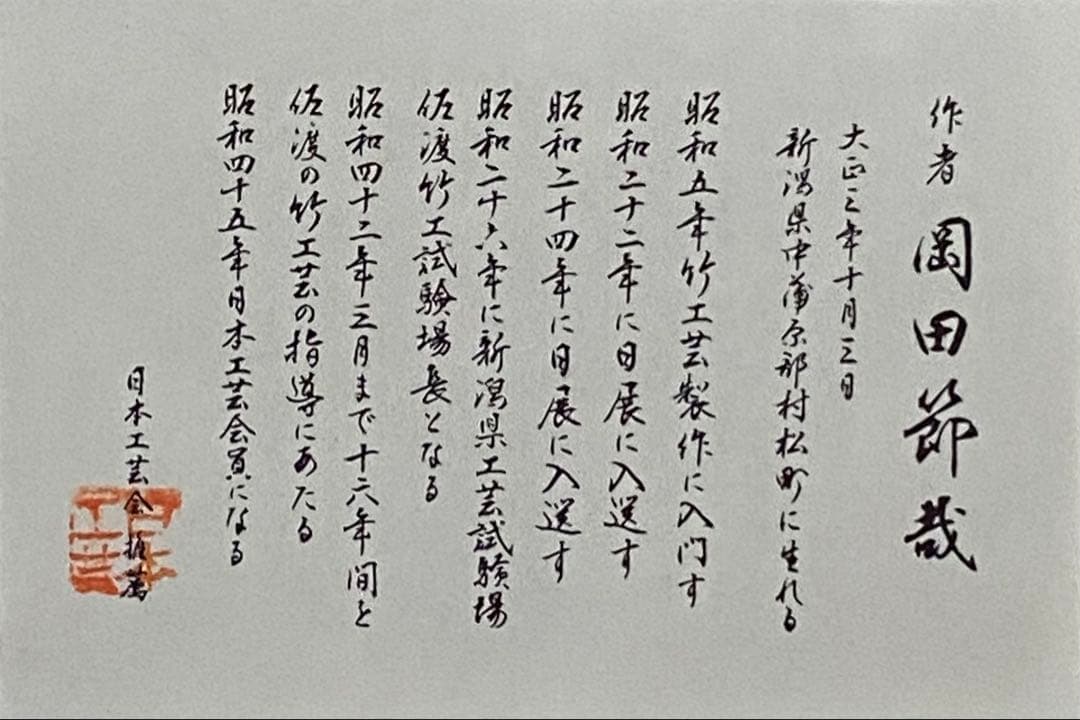 作者 岡田節哉
大正三年十月三日
新潟県中蒲原郡村松町に生れる
昭和五年竹工芸製作に入門す
昭和二十二年に日展に入選す
昭和二十四年に日展に入選す
昭和二十六年に新潟県工芸試験場
佐渡竹工試験場長となる
昭和四十二年三月まで十六年間を
佐渡の竹工芸の指導にあたる
昭和四十五年日本工芸会員になる
日本工芸会推薦